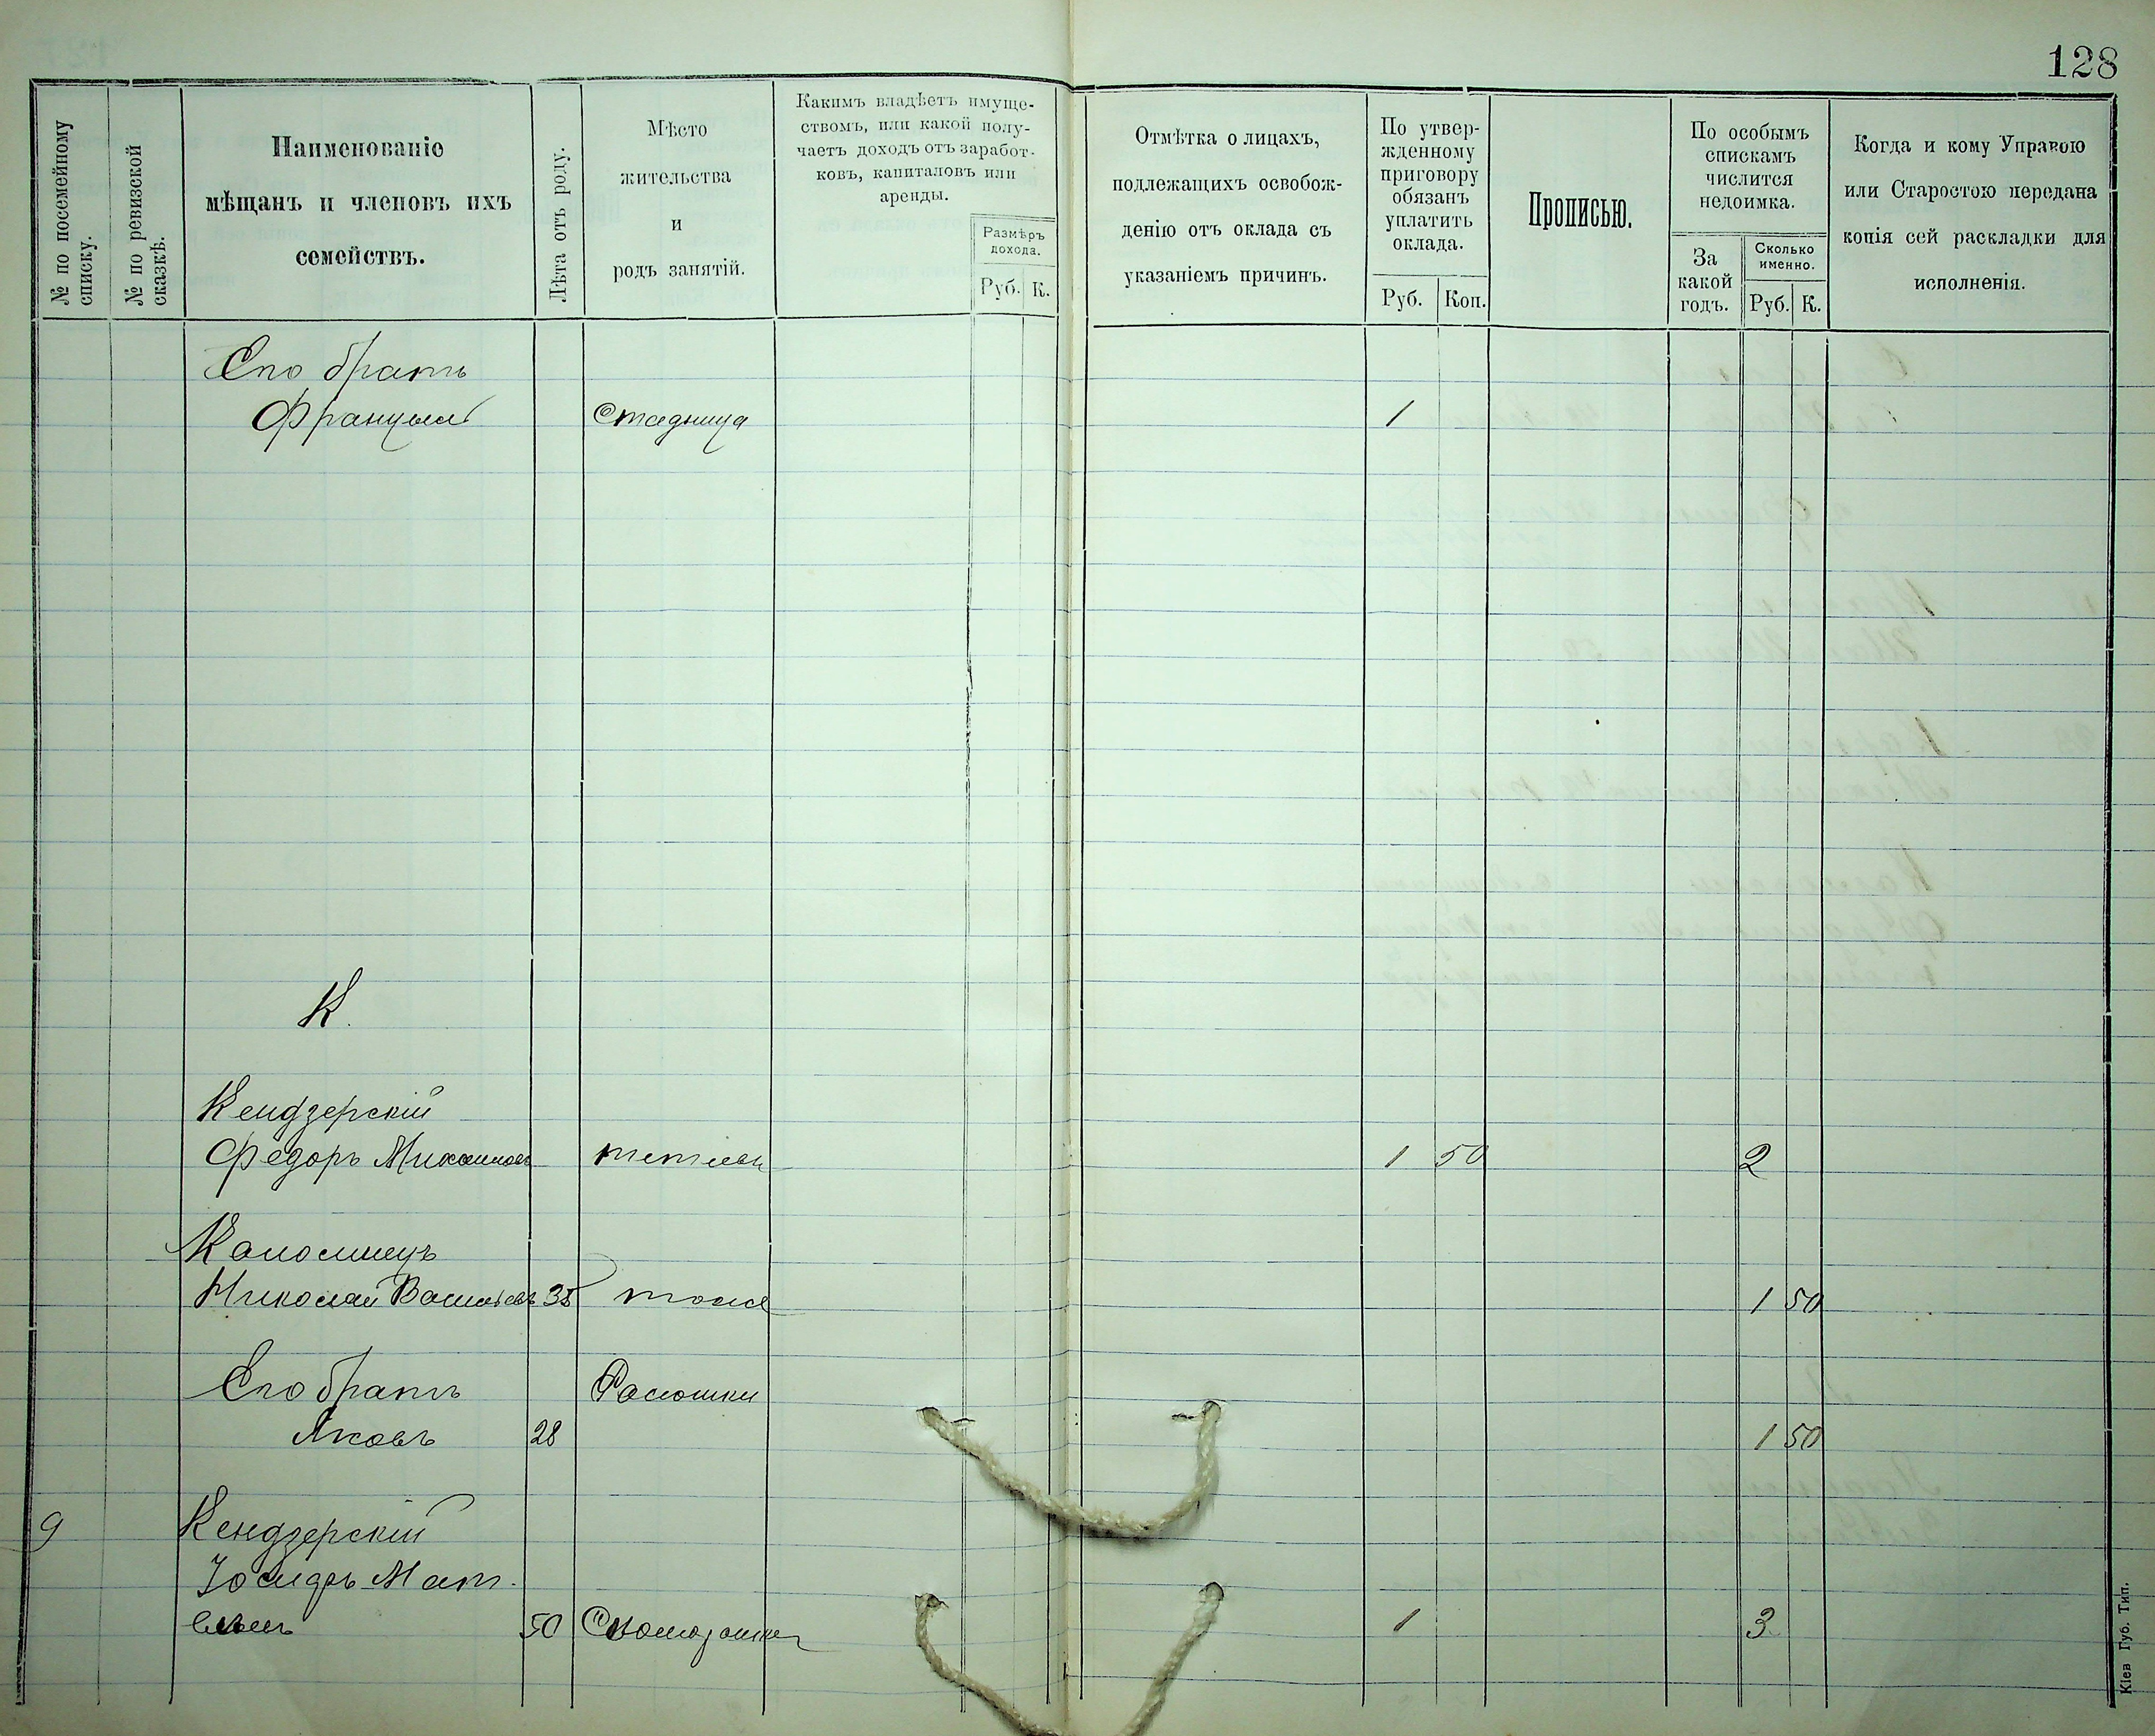 128
№ по посемейному списку.
№ по ревизской сказкѣ.
Наименованіе
мѣщанъ и членовъ ихъ
семействъ.
Лѣта отъ роду.
Мѣсто
жительства
и
родъ занятій.
Какимъ владѣетъ имуще-
ствомъ, или какой полу-
чаетъ доходъ отъ заработ-
ковъ, капиталовъ или
аренды.
Размѣръ
дохода.
Руб. К.
Отмѣтка о лицахъ,
подлежащихъ освобож-
денію отъ оклада съ
указаніемъ причинъ.
По утвер-
жденному
приговору
обязанъ
уплатить
оклада.
Руб. Коп.
Прописью.
По особымъ
спискамъ
числится
недоимка.
За
какой
годъ.
Сколько
именно.
Руб. К.
Когда и кому Управою
или Старостою передана
копія сей раскладки для
исполненія.
Его братъ
Францъ Стадница 1
К.
Кендзерскій
Федоръ Михаиловъ Тетіевъ 1 50 2
Коломіецъ
Николай Васильевъ 35 тоже 1 50
Его братъ
Яковъ 28 1 50
9 Кендзерскій
Іосифъ Мат-
50 1 3
Кіев Губ. Тип.